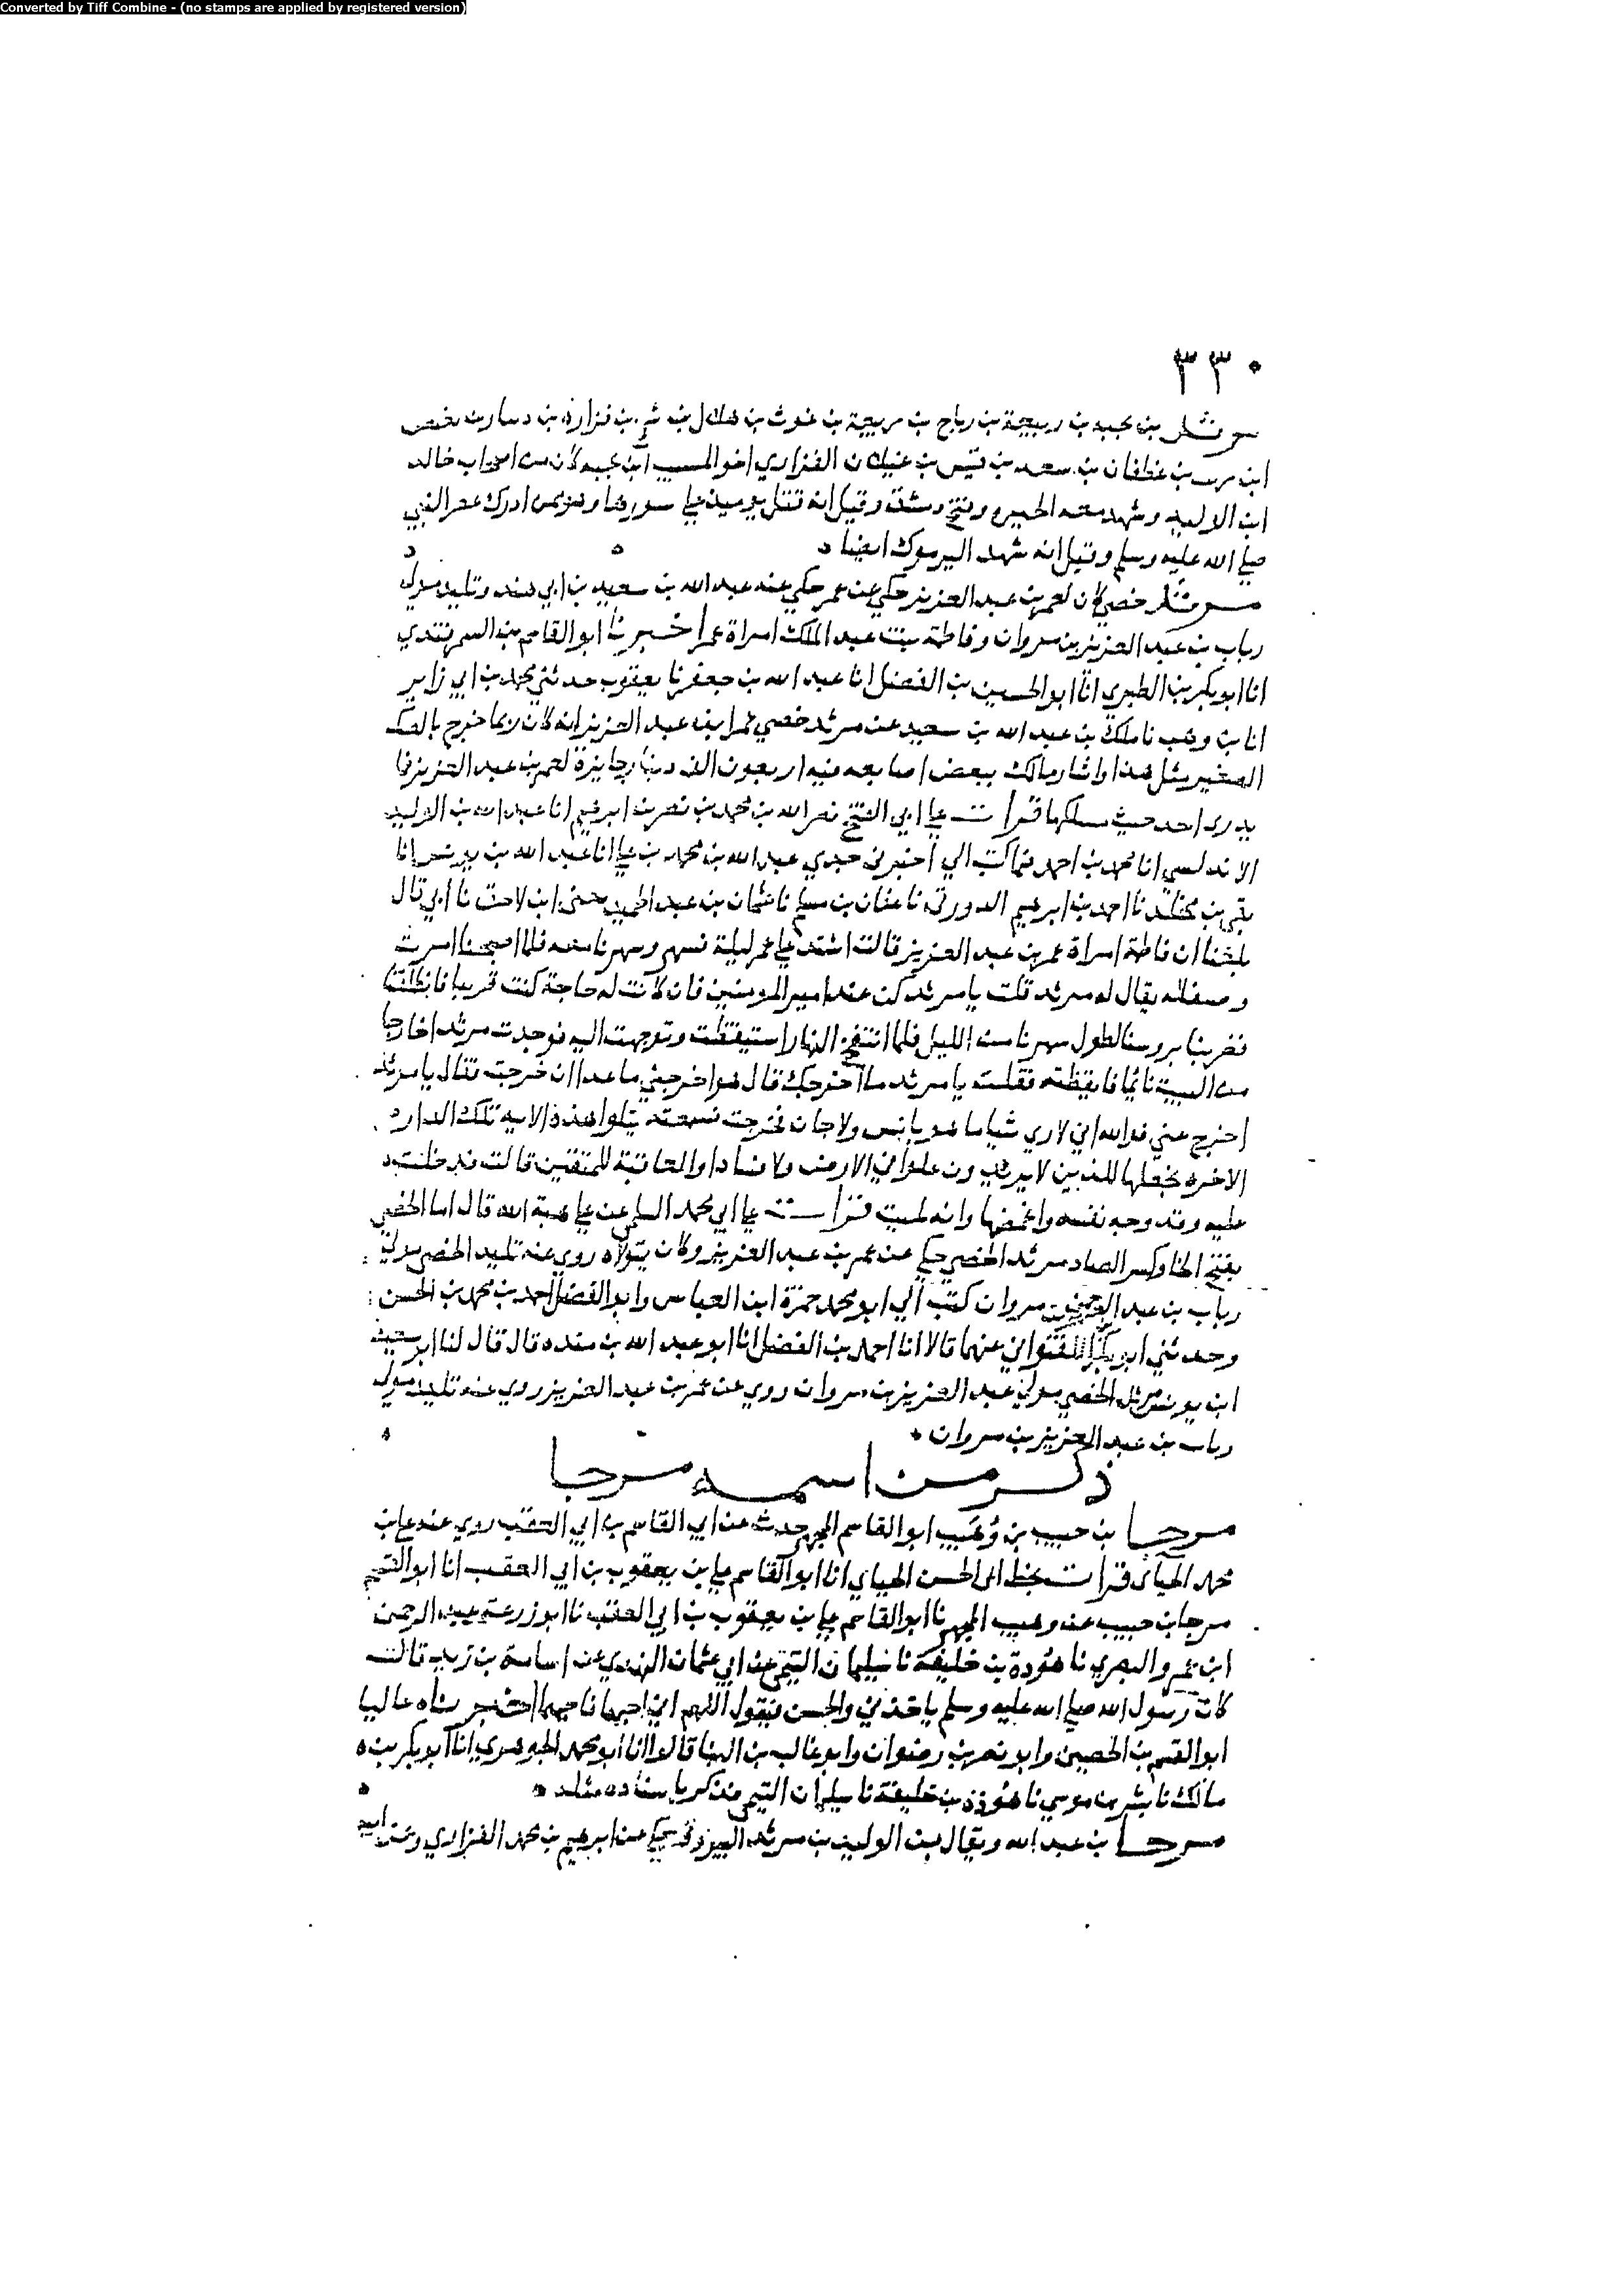 Converted by Tiff Combine - (no stamps are applied by registered version)
٣٣٠
مرثد بن نجبة بن ربيعة بن رياح بن ربيعة بن غوث بن هلال بن شمخ بن فزارة بن
ابن ريث بن غطفان بن سعد بن قيس بن غيلان الفزاري اخو المسيب ابن نجبة كان من اصحاب خالد
ابن الوليد وشهد معه الحيره وفتح دمشق وقيل انه قتل يوميذ علي سورها وهو ممن ادرك عصر النبي
صلي الله عليه وسلم وقيل انه شهد اليرموك ايضا
مرثد خصي كان لعمر بن عبد العزيز حكي عن عمر حكي عنه عبد الله بن سعيد بن ابي هند وتليد مولي
رباب بن عبد العزيز بن مروان وفاطمة بنت عبد الملك امراة عمر اخبرنا ابو القاسم بن السمرقندي
انا ابو بكر بن الطبري انا ابو الحسين بن الفضل انا عبد الله بن جعفر نا يعقوب حدثني محمد بن ابي زكير
انا بن وهب نا ملك بن عبد الله بن سعيد عن مرثد خصي عمر ابن عبد العزيز انه كان ربما خرج بالصك
الصغير مثل هذا واشار مالك ببعض اصابعه فيه اربعون الف دينار جايزة لعمر بن عبد العزيز فما
يدري احد حيث سلكها قرات علي ابي الفتح نصر الله بن محمد بن نصر بن ابرهيم انا عبد الله بن الوليد
الاندلسي انا محمد بن احمد فيما كتب الي اخبرني جدي عبد الله بن محمد بن علي انا عبد الله بن يونس انا
بقي بن مخلد نا احمد بن ابرهيم الدورقي نا عفان بن مسلم نا عثمان بن عبد الحميد يعني ابن لاحق نا ابي قال
بلغنا ان فاطمة امراة عمر بن عبد العزيز قالت اشتد علي عمر ليلة فسهر وسهرنا معه فلما اصبحنا امرت
وصيفا له يقال له مرثد قلت يا مرثد كن عند امير المومنين فان كانت له حاجة كنت قريبا فانطلقنا
فضربنا بروسنا لطول سهرنا من الليل فلما انتفخ النهار استيقظت وتوجهت اليه فوجدت مرثدا خارجا
من البيت نايما فايقظته فقلت يا مرثد ما اخرجك قال هو اخرجني ما عدا ان خرجت فقال يا مرثد
اخرج عني فوالله اني لاري شيا ما هو بانس ولا جان فخرجت فسمعته يتلوا هذه الايه تلك الدار
الاخره نجعلها للذين لا يريدون علوا في الارض ولا فسادا والعاقبة للمتقين قالت فدخلت
عليه وقد وجه نفسه واغمضها وانه لميت قرات علي ابي محمد السلمي عن علي هبة الله قال اما الخصي
بفتح الخا وكسر الصاد مرثد الخصي حكي عن عمر بن عبد العزيز وكان يتولاه روي عنه تليد الخصي مولي
رباب بن عبد العزيز بن مروان كتب الي ابو محمد حمزة ابن العباس وابو الفضل احمد بن محمد بن الحسن
وحدثني ابو بكر اللفتواني عنهما قالا انا احمد بن الفضل انا ابو عبد الله بن منده قال قال لنا ابو سعيد
ابن يونس مرثد الخصي مولي عبد العزيز بن مروان روي عن عمر بن عبد العزيز روي عنه تليد مولي
رباب بن عبد العزيز بن مروان
ذكر من اسمه مرجا
مرجا بن حبيب بن وهيب ابو القاسم حدث عن ابي القاسم بن ابي العقب روي عنه علي بن
محمد الحياي قرات بخط ابي الحسن الحياي انا ابو القاسم علي بن يعقوب بن ابي العقب انا ابو القسم
مرجا بن حبيب عن وهيب نا ابو القاسم علي بن يعقوب بن ابي العقب نا ابو زرعة عبد الرحمن
ابن عمرو البصري نا هوذة بن خليفة نا سليمان التيمي عن ابي عثمان النهدي عن اسامة بن زيد قال
كان رسول الله صلي الله عليه وسلم ياخذني والحسن فيقول اللهم اني احبهما فاحبهما اخبرناه عاليا
ابو القسم بن الحصين وابو نصر بن رضوان وابو غالب بن البنا قالوا انا ابو محمد الجوهري انا ابو بكر بن
مالك نا بشر بن موسي نا هوذة بن خليفة نا سليمان التيمي فذكر باسناده مثله
مرجا بن عبد الله ويقال بن الوليد بن مرثد البيروتي حكي عن ابرهيم بن محمد الفزاري وعن ابيه